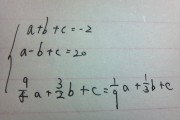 a+b+c=-2
a-b+c=20
9/4 a + 3/2 b + c = 1/9 a + 1/3 b + c